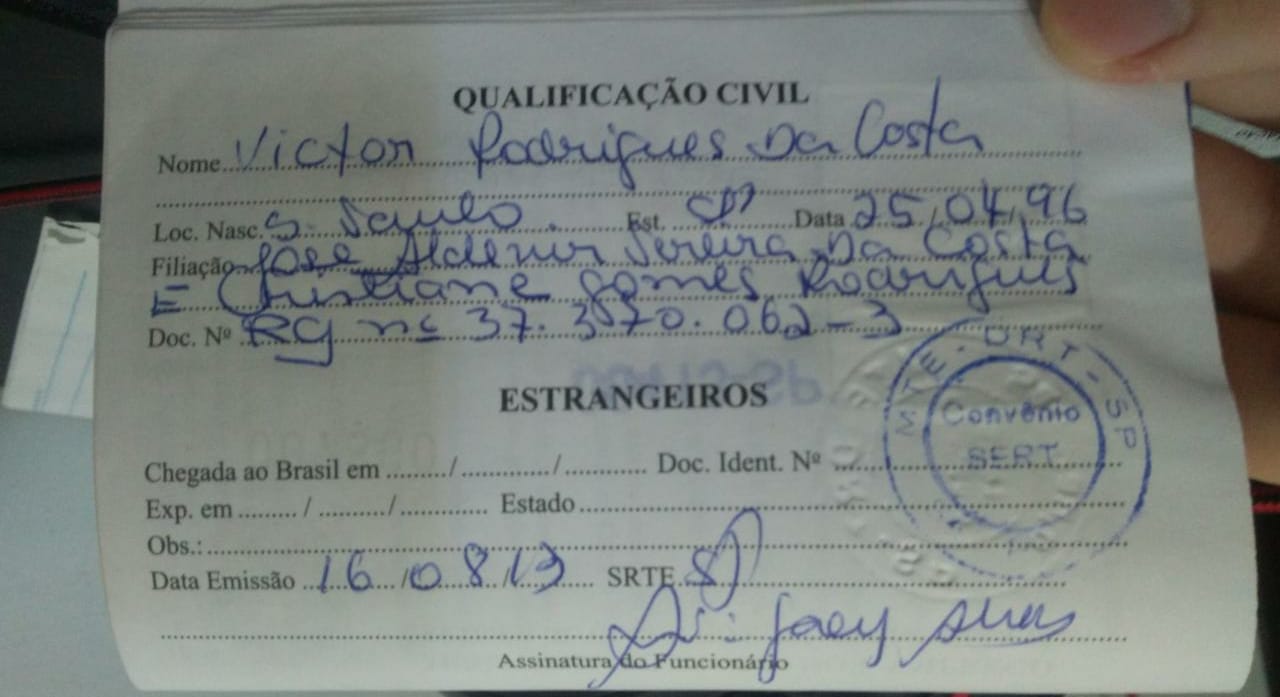 QUALIFICAÇÃO CIVIL
Nome Victor Rodrigues Da Costa
Loc. Nasc. S. Paulo. Est. SP Data 25/04/96
Filiação Jose Aldenir Pereira Da Costa
E Cristiane Gomes Rodrigues
Doc. Nº RG nº 37.370.062-3
ESTRANGEIROS
Chegada ao Brasil em ......../............/............ Doc. Ident. Nº
Exp. em ........./............/............ Estado
Obs.:
Data Emissão 16/08/13 SRTE SP
Assinatura do Funcionário
MTE - DRT - SP
Convênio
SERT